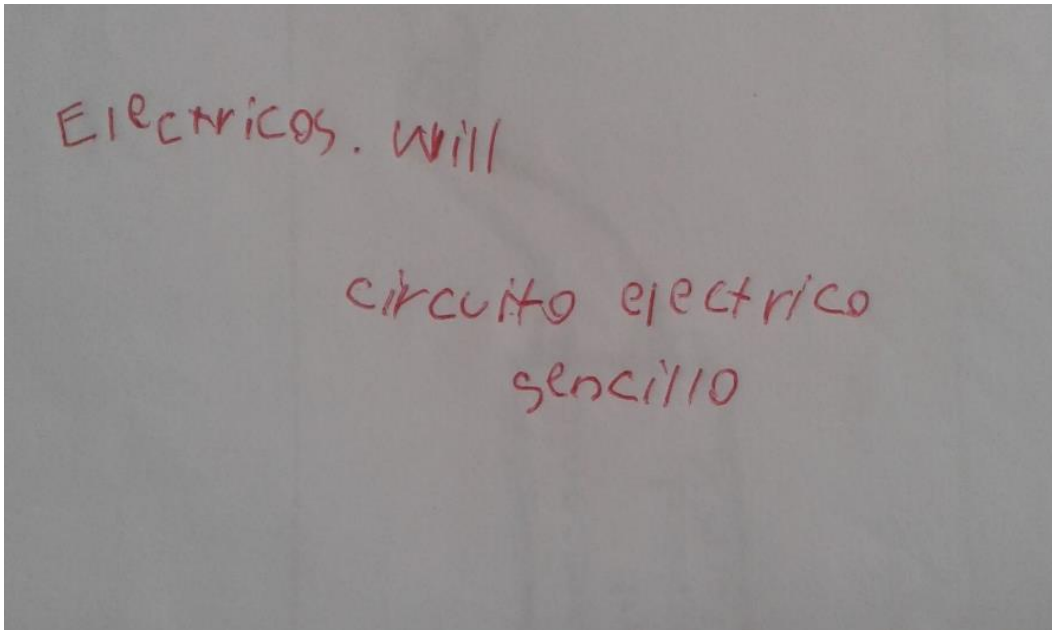 Electricos. Will
circuito electrico
sencillo